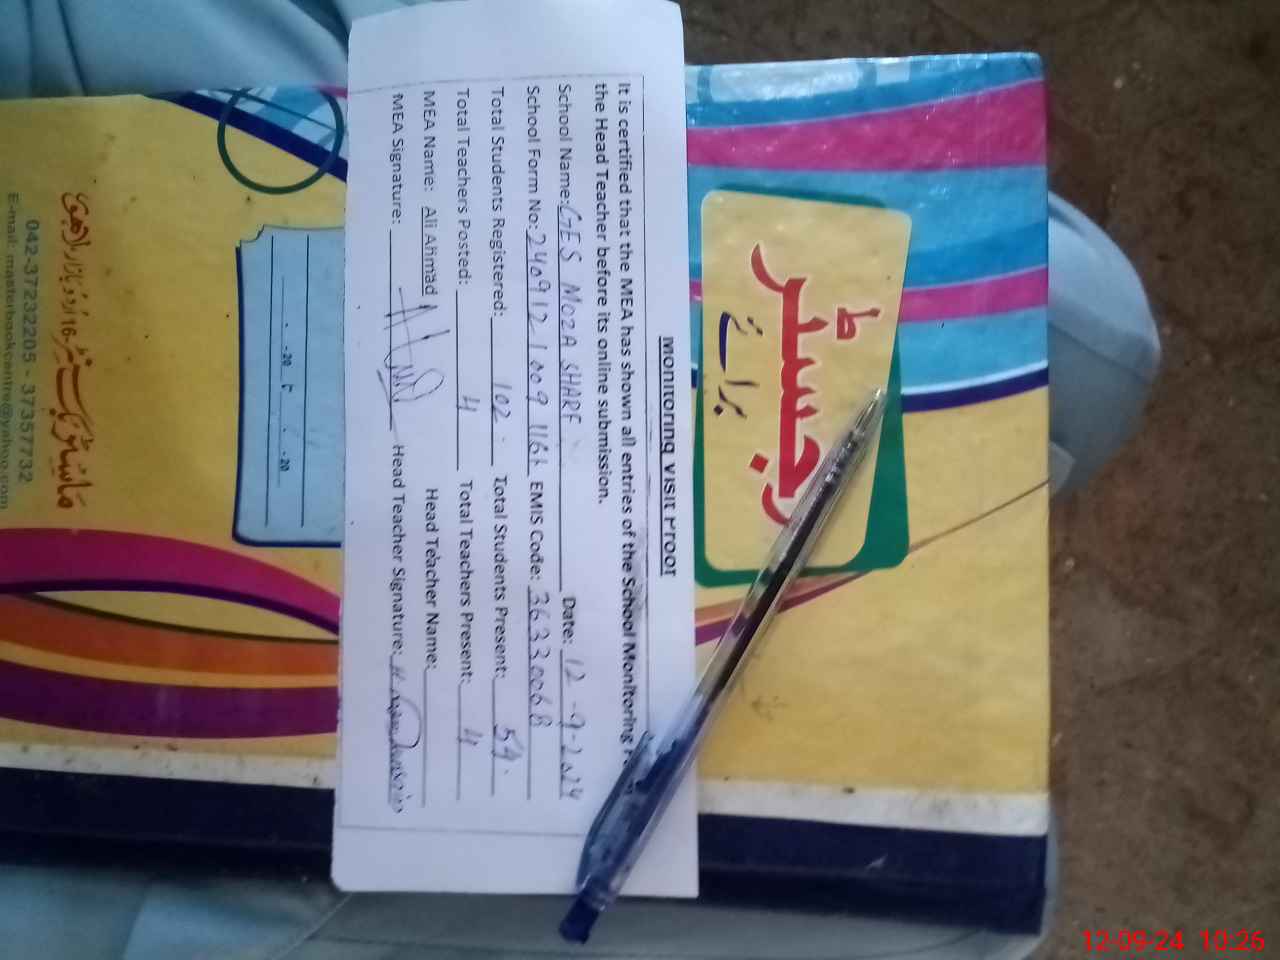 Monitoring Visit Proof
It is certified that the MEA has shown all entries of the School Monitoring
the Head Teacher before its online submission.
School Name: GES MOZA SHARF Date: 12-9-2024
School Form No: 2409121009 EMIS Code: 36330068
Total Students Registered: 102 Total Students Present: 54
Total Teachers Posted: 4 Total Teachers Present: 4
MEA Name: Ali Ahmad Head Teacher Name:
MEA Signature: Head Teacher Signature:
رجسٹر
برائے
-20 -20
042-37232205 - 37357732
E-mail: masterbookcentre@yahoo.com
12-09-24 10:26